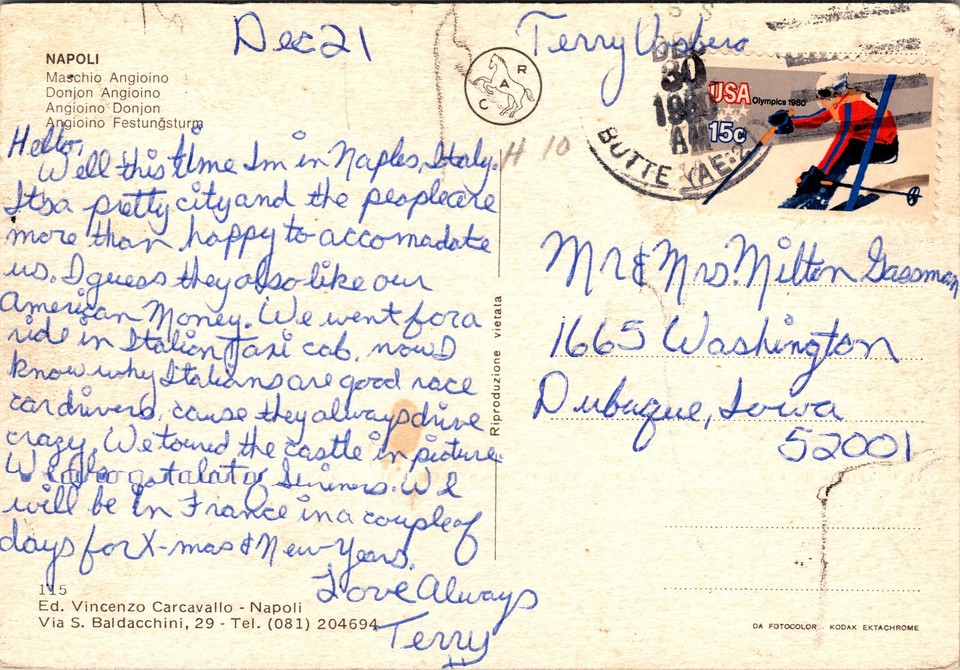 Dec 21
Terry
NAPOLI
Maschio Angioino
Donjon Angioino
Angioino Donjon
Angioino Festungsturm
CAR
DEC
30
AM
BUTTE
USA Olympics 1980
15c
H 10
Hello,
Well this time Im in Naples, Italy.
Itsa pretty city and the people are
more than happy to accomadate
us. I guess they also like our
American Money. We went for a
ride in Italian Taxi cab, now I
know why Italians are good race
car drivers, cause they always drive
crazy. We toured the castle in picture.
We also got alat
will be in France in a couple of
days for X-mas & New-Years.
Love Always
Terry
Riproduzione vietata
Mr & Mrs. Milton Gassman
1665 Washington
Dubuque, Iowa
52001
115
Ed. Vincenzo Carcavallo - Napoli
Via S. Baldacchini, 29 - Tel. (081) 204694
DA FOTOCOLOR KODAK EKTACHROME